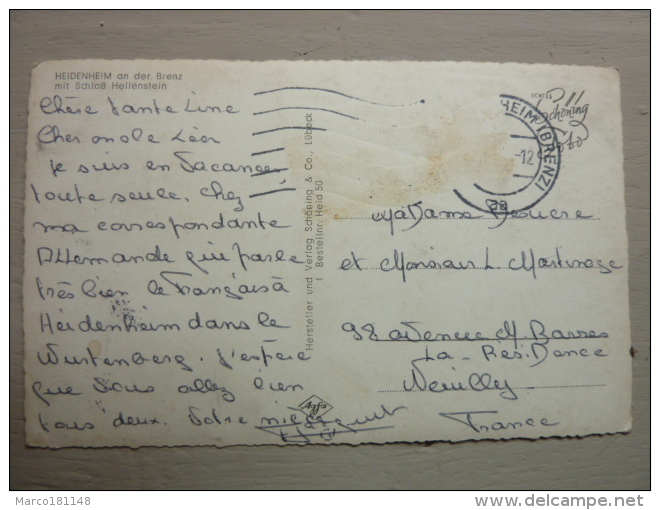 HEIDENHEIM an der Brenz
mit Schloß Hellenstein
Chère tante Line
Cher oncle Léon
je suis en vacances
toute seule, chez
ma correspondante
Allemande qui parle
très bien le Français à
Heidenheim dans le
Wurtenberg. J'espère
que vous allez bien
tous deux. Votre nièce
Hersteller und Verlag Schöning & Co., Lübeck
Bestellnr Heid 50
ECHTES
Schöning
Foto
HEIM (BRENZ)
Madame
et Monsieur L. Martinage
98 avenue M. Barres
La Résidence
Neuilly
France
Marco181148
delcampe.net